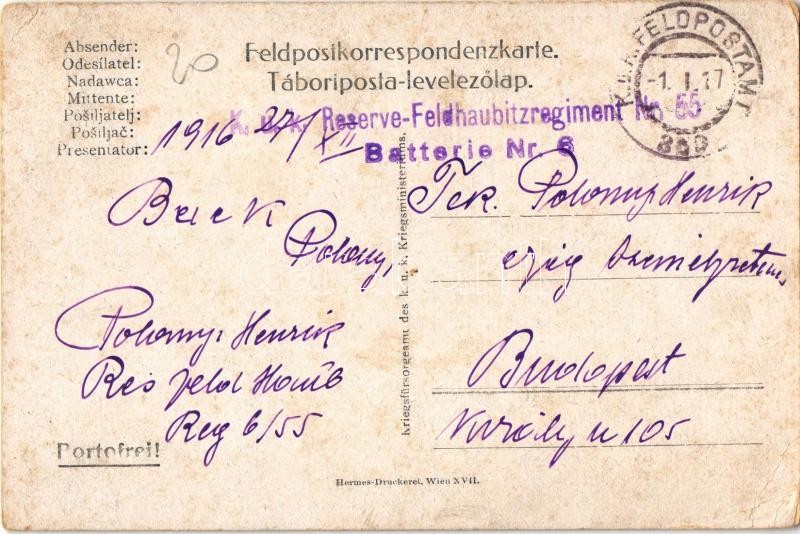 Absender:
Odesílatel:
Nadawca:
Mittente:
Pošiljatelj:
Pošiljač:
Presentator:
20
Feldpostkorrespondenzkarte.
Táboriposta-levelezőlap.
K.u.K. FELDPOSTAMT
-1. I. 17
K. u. k. Reserve-Feldhaubitzregiment Nr. 55
Batterie Nr. 6
1916 27/XII
Polony,
Polonyi Henrik
Res feld Haub
Reg 6/55
Portofrei!
Kriegsfürsorgeamt des k. u. k. Kriegsministeriums.
Tek. Polonyi Henrik
Budapest
Király u 105
Hermes-Druckerei, Wien XVII.